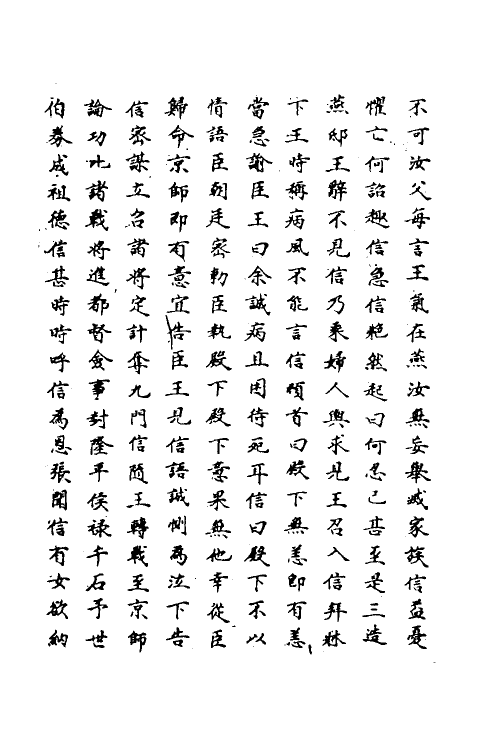 不可汝父每言王氣在燕汝無妄舉滅家族信益憂
懼亡何詔趣信急信艴然起曰何忍已甚至是三造
燕邸王辭不見信乃乘婦人輿求見王召入信拜牀
下王時稱病風不能言信頓首曰殿下無恙即有恙
當急諭臣王曰余誠病且困待死耳信曰殿下不以
情語臣朝廷密勑臣執殿下殿下意果無他幸從臣
歸命京師即有意宜告臣王見信語誠惻為泣下告
信密謀立召諸將定計奪九門信隨王轉戰至京師
論功比諸戰將進都督僉事封隆平侯祿千石予世
伯券成祖德信甚時時呼信為恩張聞信有女欲納